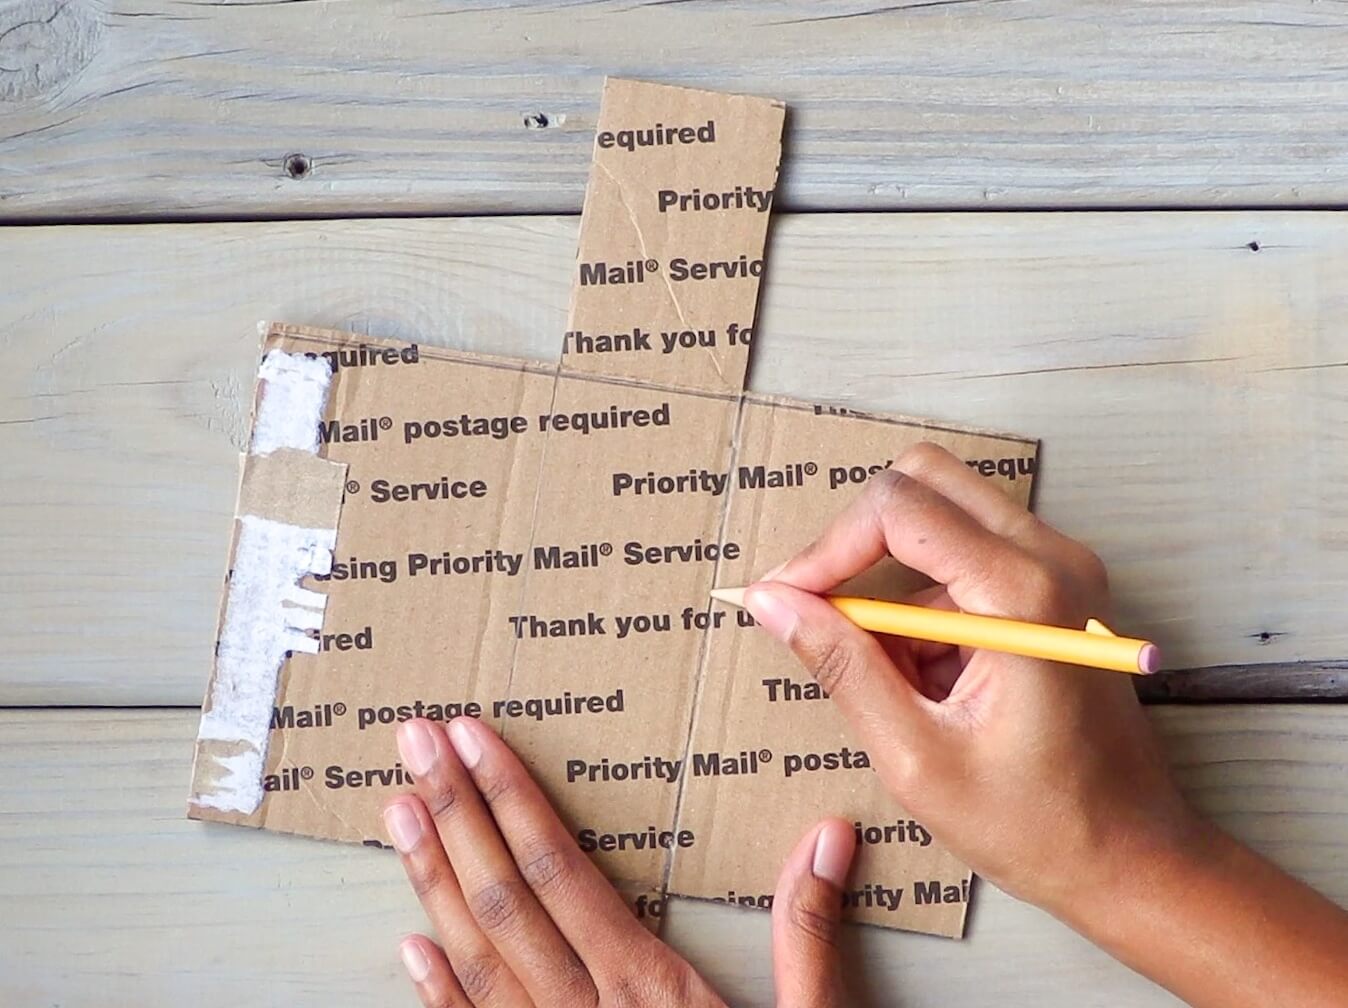 equired
Priority
Mail® Servic
Thank you fo
quired
Mail® postage required
® Service
Priority Mail® pos requ
using Priority Mail® Service
Thank you for u
ired
Tha
Mail® postage required
ail® Servic
Priority Mail® posta
Service
iority
fo
sing
ority Mai